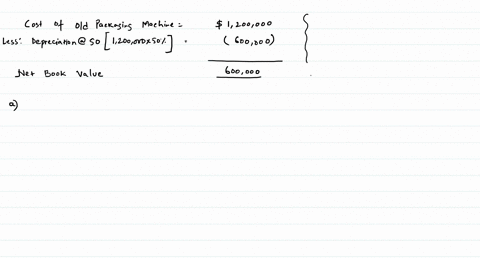 Cost of old Packaging Machine = $ 1,200,000
Less: Depreciation @ 50 [1,200,000x50%] = (600,000)
Net Book Value 600,000
a)